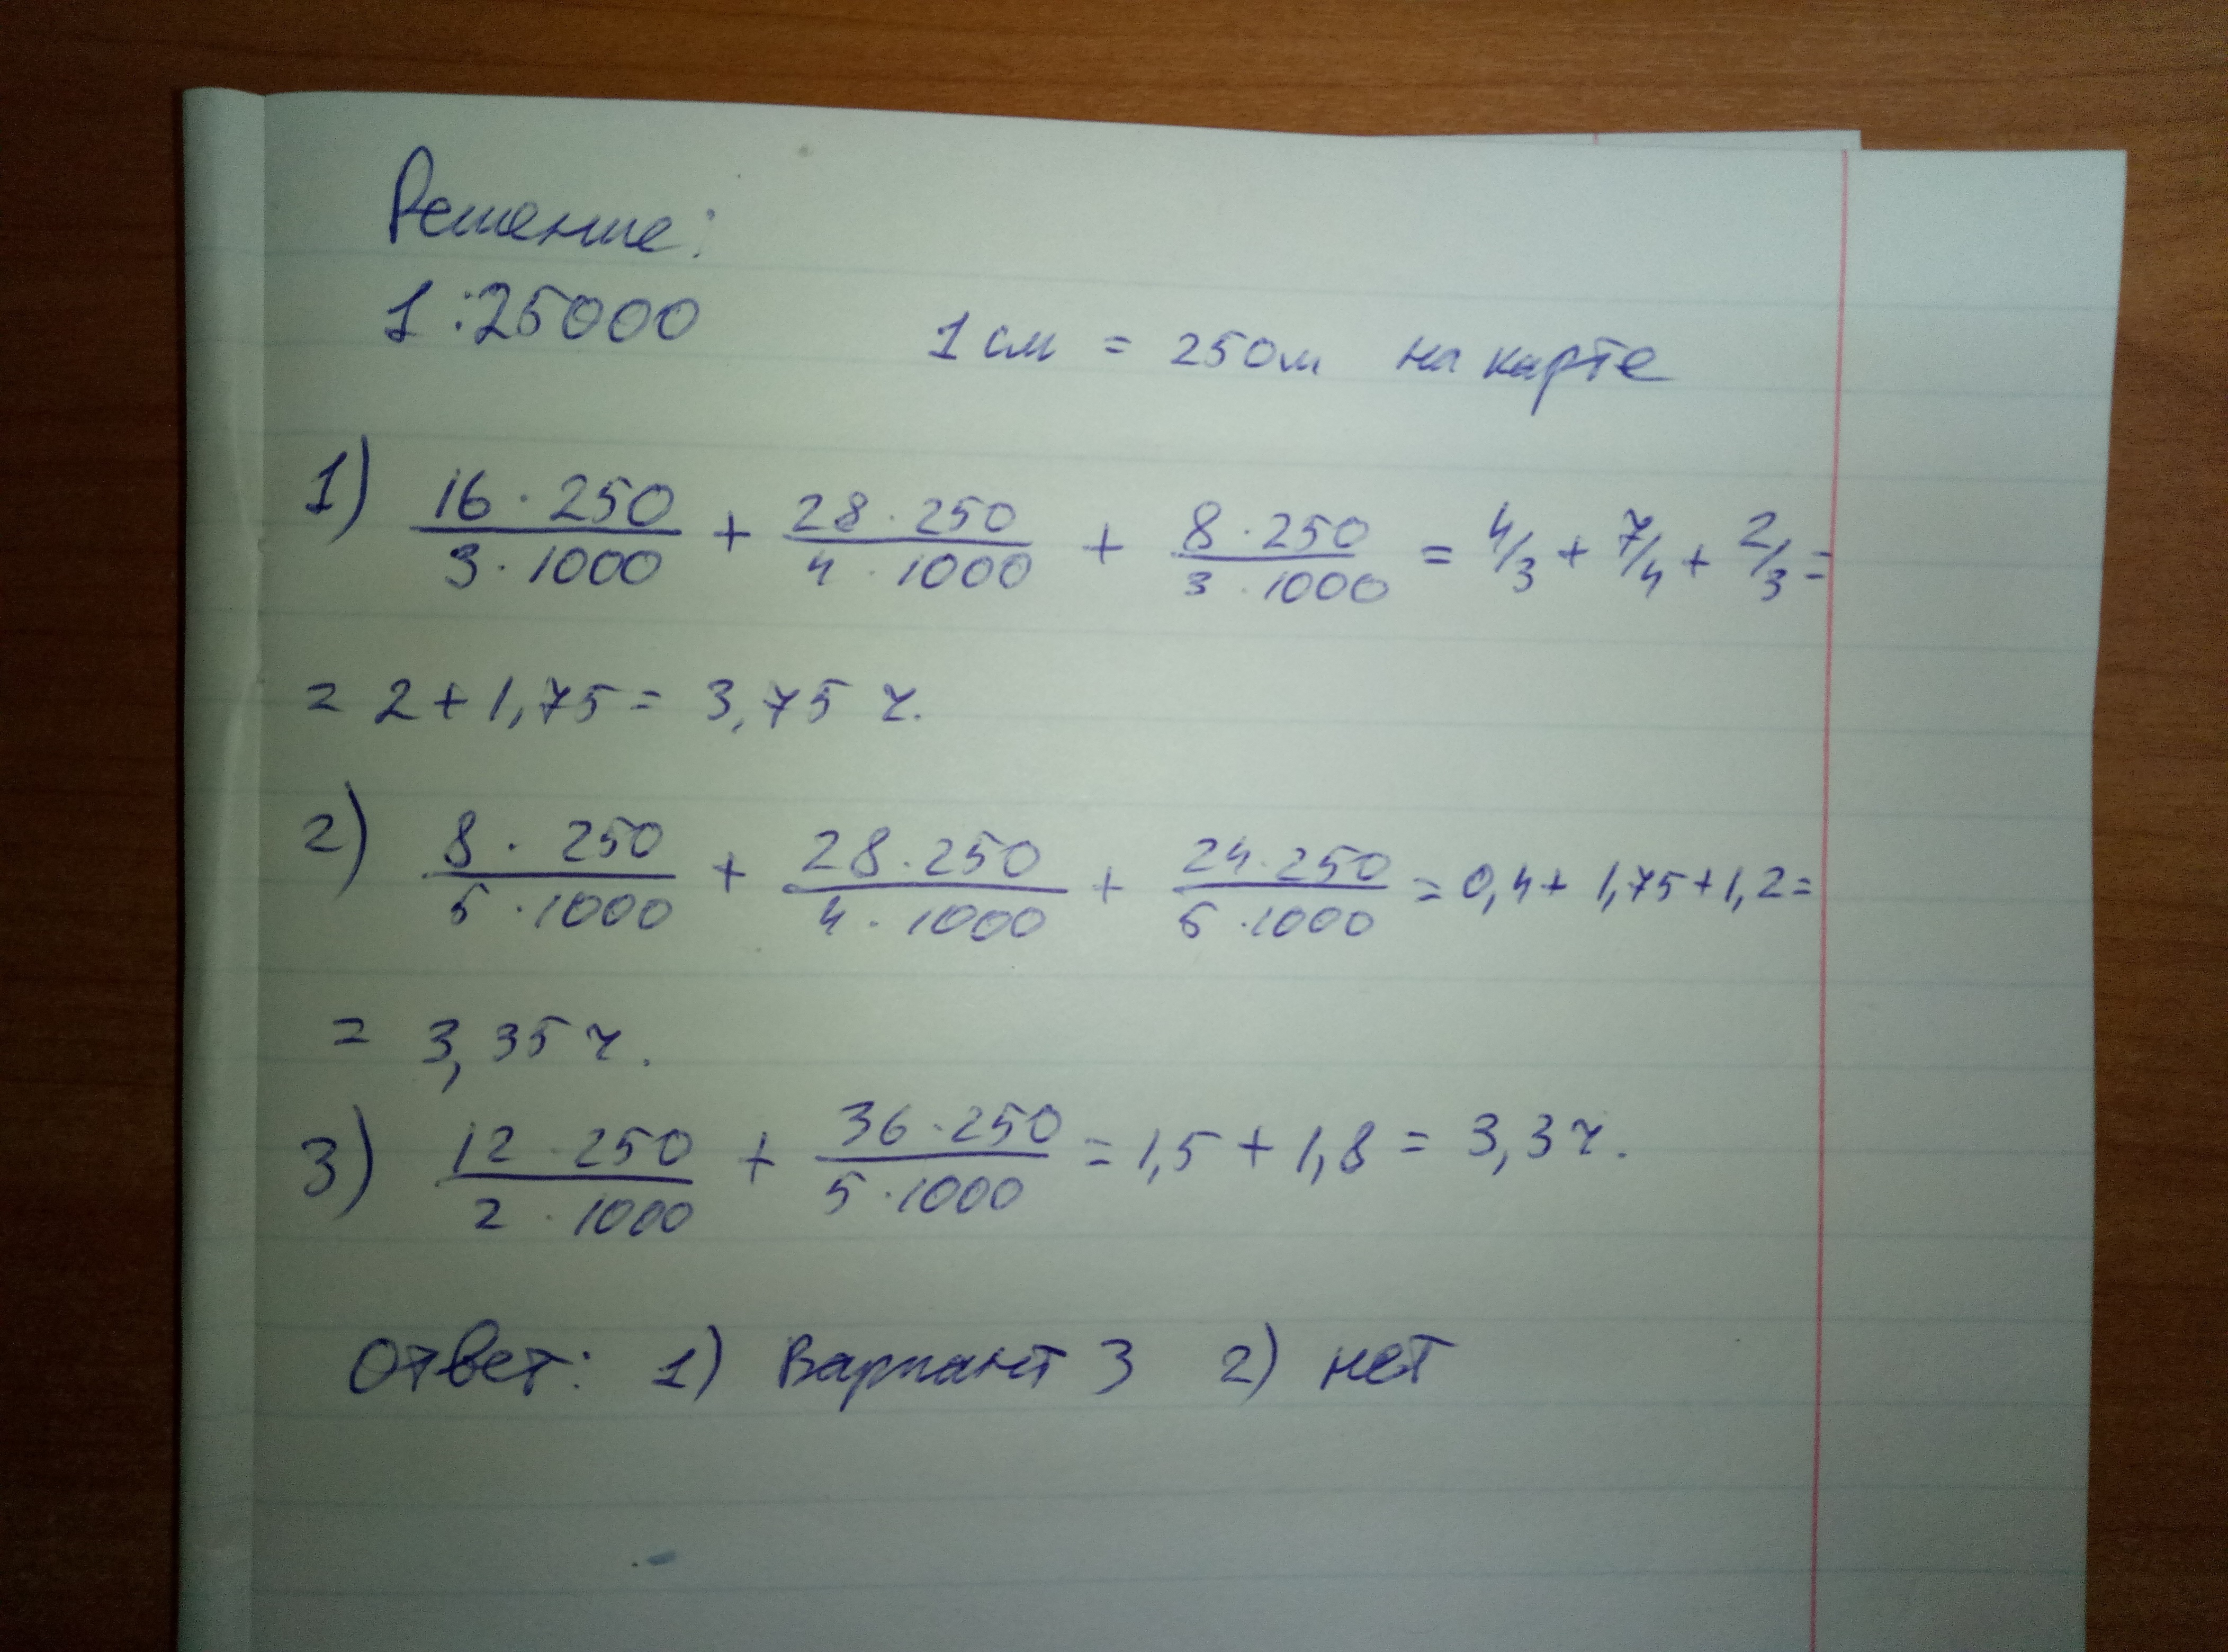 Решение:
1:25000 1 см = 250м на карте
1) 16 · 250 / 3 · 1000 + 28 · 250 / 4 · 1000 + 8 · 250 / 3 · 1000 = 4/3 + 7/4 + 2/3 =
= 2 + 1,75 = 3,75 ч.
2) 8 · 250 / 5 · 1000 + 28 · 250 / 4 · 1000 + 24 · 250 / 5 · 1000 = 0,4 + 1,75 + 1,2 =
= 3,35 ч.
3) 12 · 250 / 2 · 1000 + 36 · 250 / 5 · 1000 = 1,5 + 1,8 = 3,3 ч.
Ответ: 1) Вариант 3 2) нет